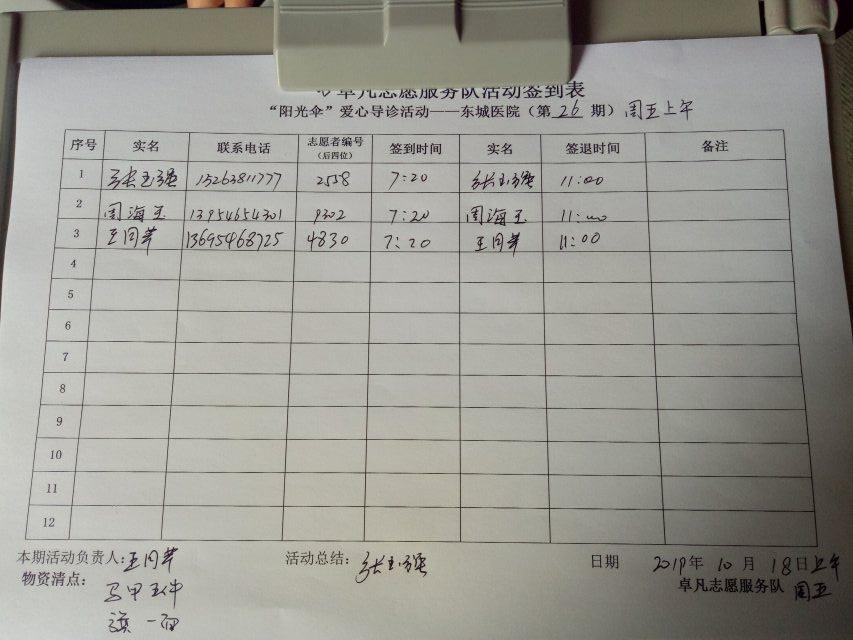 卓凡志愿服务队活动签到表
“阳光伞”爱心导诊活动——东城医院（第 26 期）周五上午
序号 实名 联系电话 志愿者编号（后四位） 签到时间 实名 签退时间 备注
1 张玉强 15263811777 2558 7:20 张玉强 11:00
2 周海玉 13954654301 9302 7:20 周海玉 11:00
3 王同苹 13695468725 4830 7:20 王同苹 11:00
4
5
6
7
8
9
10
11
12
本期活动负责人: 王同苹 活动总结: 张玉强 日期 2019年 10 月 18日上午
物资清点: 马甲五件 卓凡志愿服务队 周五
旗一面